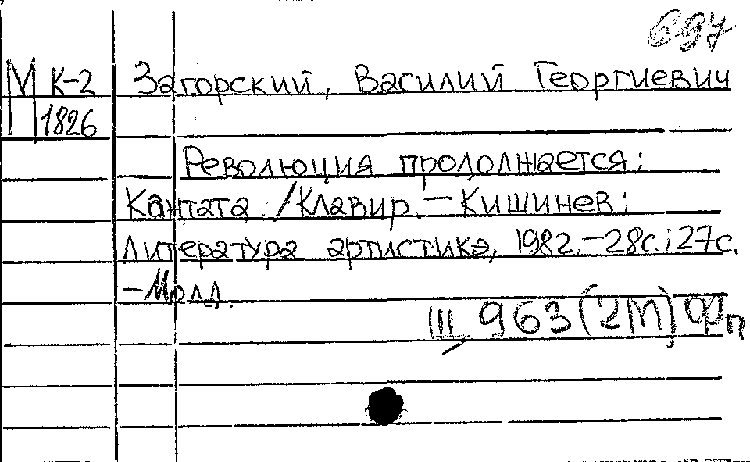 697
М К-2 Загорский, Василий Георгиевич
1826
Революция продолжается:
Кантата /Клавир.-Кишинев:
Литература артистикэ, 1982.-28с.; 27с.
-Молд.
III 963(2М) Фп